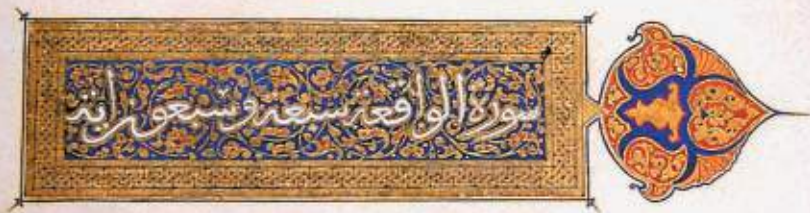 سورة الواقعة سبعة وتسعون اية